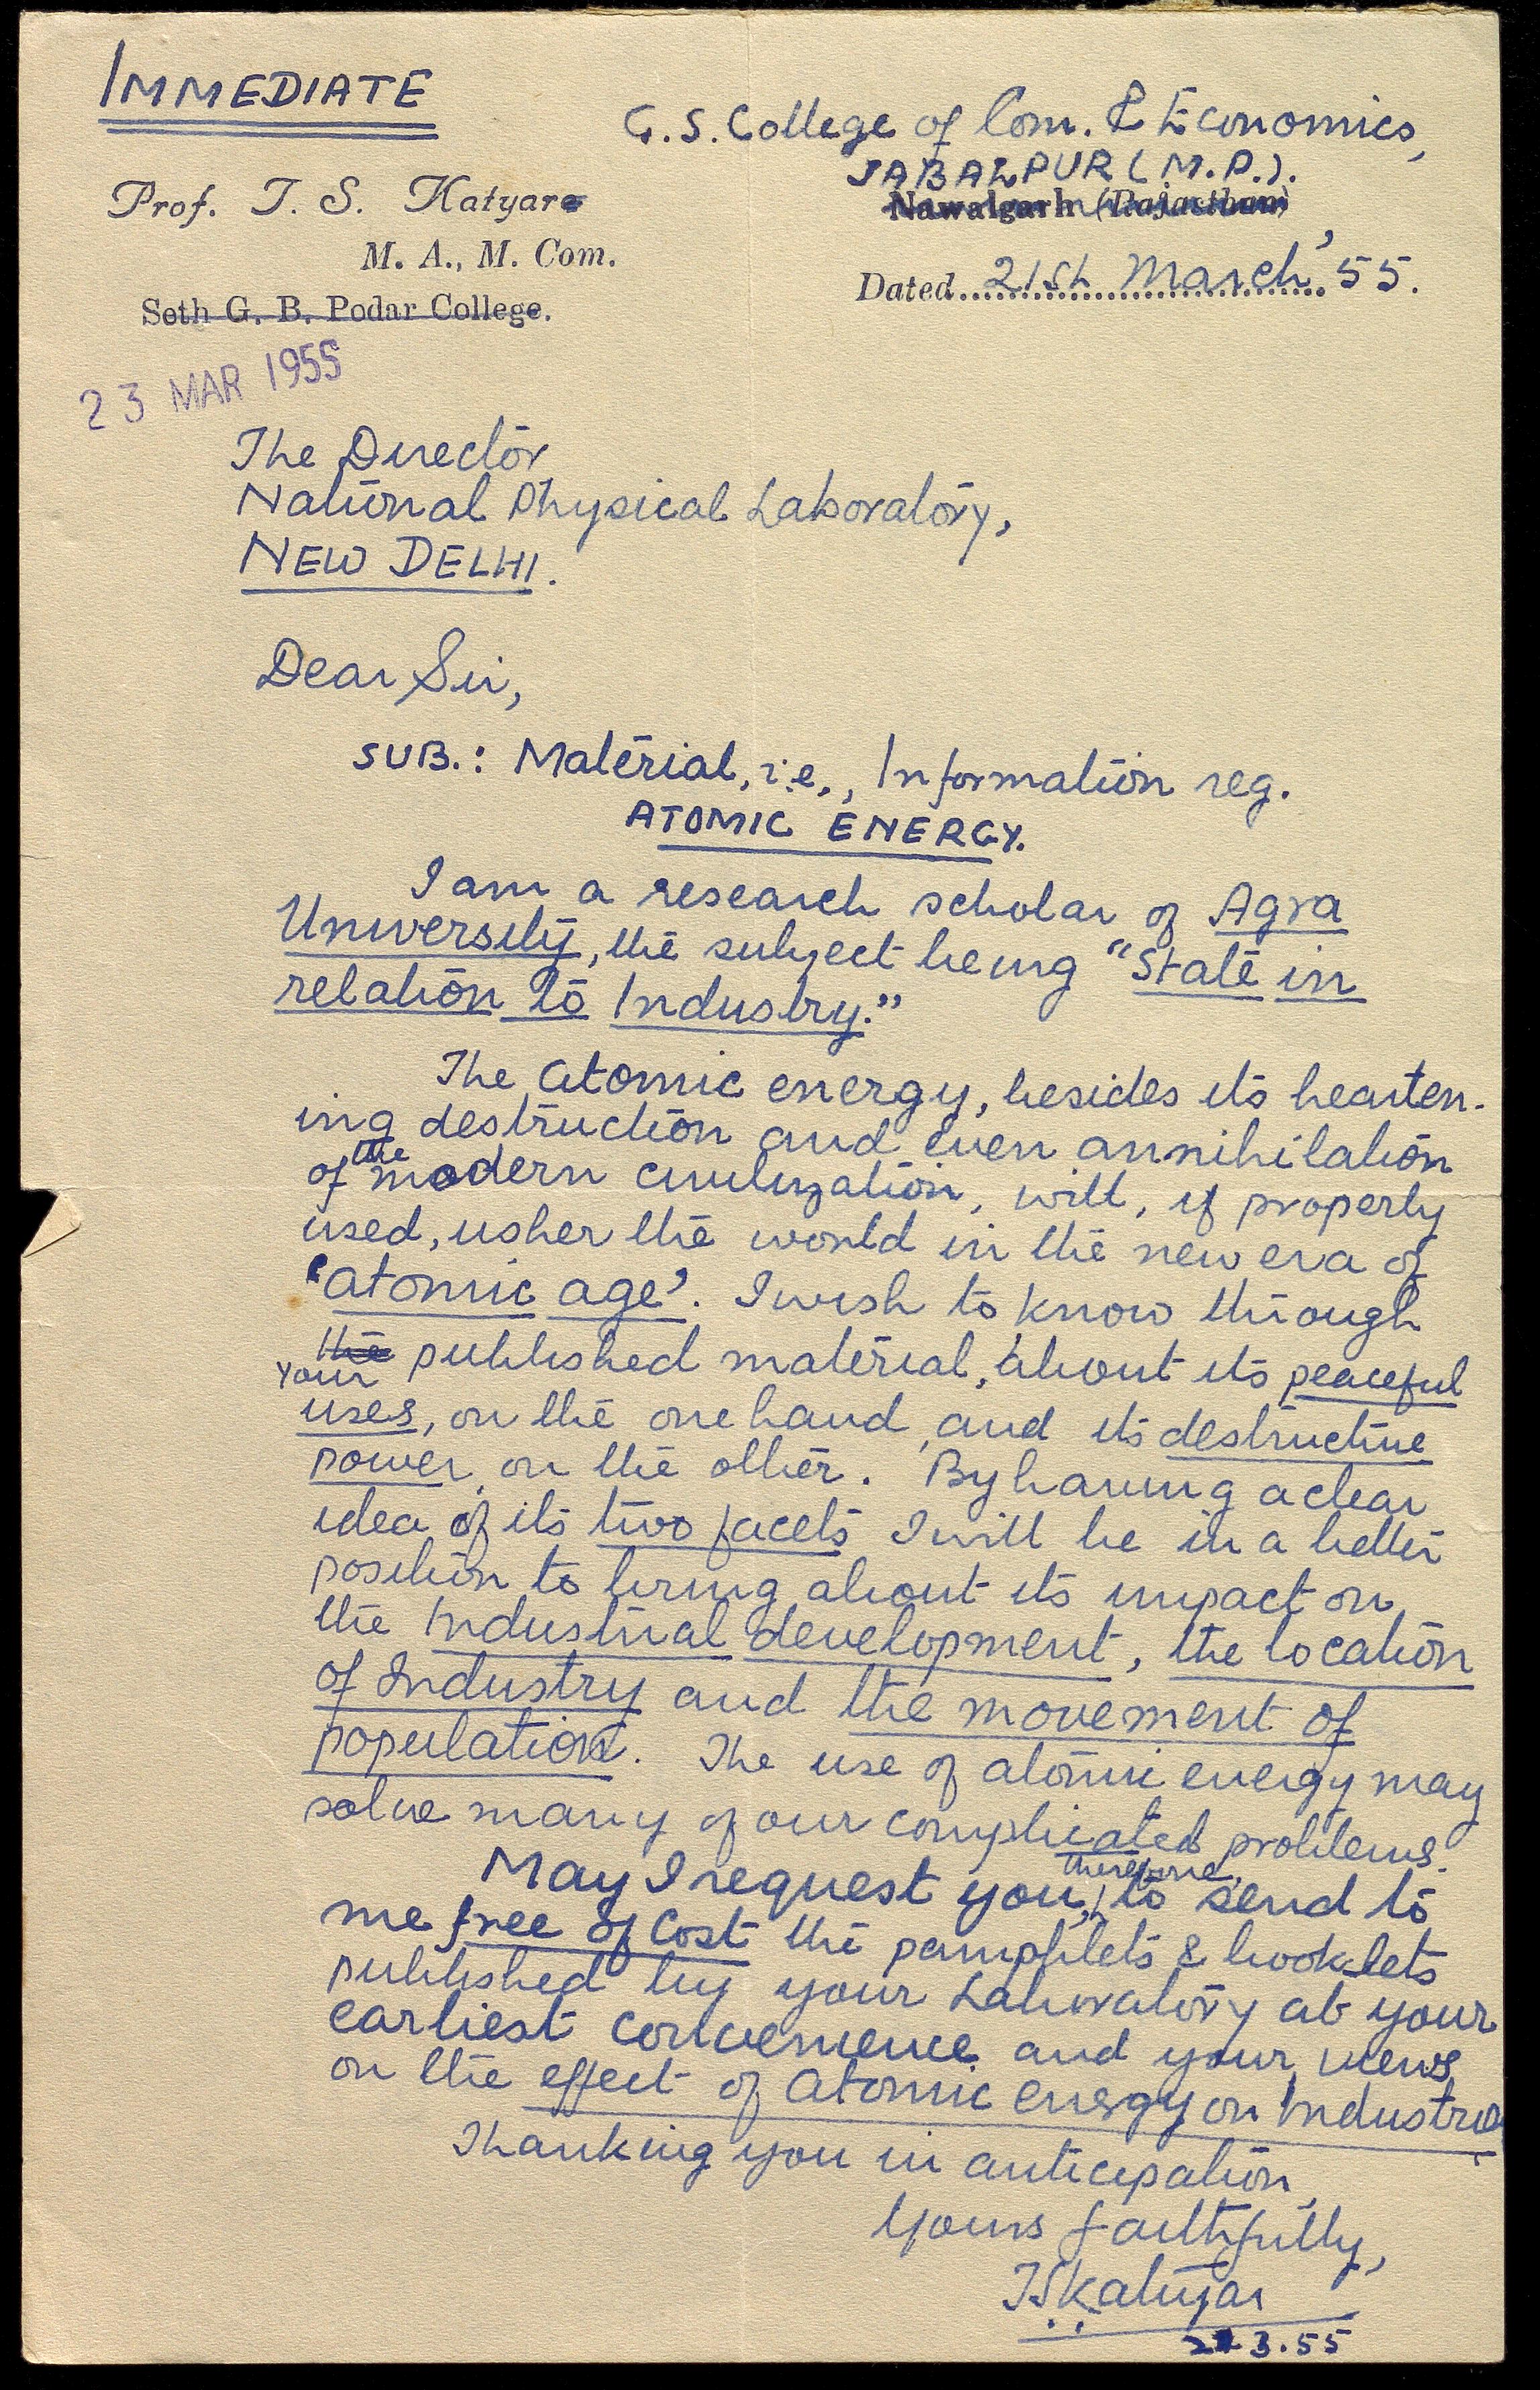 IMMEDIATE
G.S. College of Com. & Economics,
JABALPUR (M.P.).
Prof. T. S. Katyare
Nawalgarh (Rajasthan)
M. A., M. Com.
Dated 21st March, '55.
Seth G. B. Podar College.
23 MAR 1955
The Director
National Physical Laboratory,
NEW DELHI.
Dear Sir,
SUB.: Material, i.e., Information reg.
ATOMIC ENERGY.
I am a research scholar of Agra
University, the subject being "State in
relation to Industry."
The atomic energy, besides its hearten-
ing destruction and even annihilation
of the modern civilization, will, if properly
used, usher the world in the new era of
'atomic age'. I wish to know through
the your published material, about its peaceful
uses, on the one hand, and its destructive
power, on the other. By having a clear
idea of its two facets I will be in a better
position to bring about its impact on
the Industrial development, the location
of Industry and the movement of
population. The use of atomic energy may
solve many of our complicated problems.
May I request you, therefore, to send to
me free of cost the pamphlets & booklets
published by your Laboratory at your
earliest convenience and your views
on the effect of atomic energy on Industria
Thanking you in anticipation,
Yours faithfully,
TSKatyar
3.55